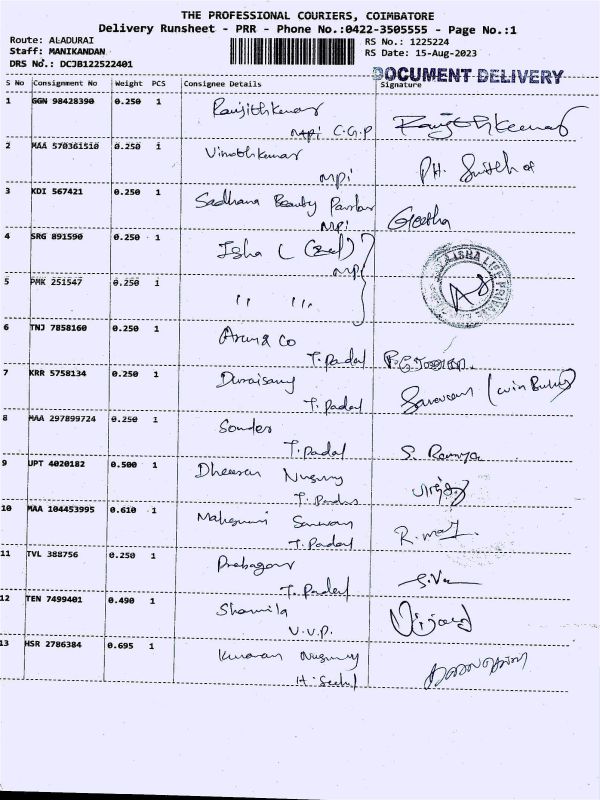 THE PROFESSIONAL COURIERS, COIMBATORE
Delivery Runsheet - PRR - Phone No.:0422-3505555 - Page No.:1
Route: ALADURAI RS No.: 1225224
Staff: MANIKANDAN RS Date: 15-Aug-2023
DRS No.: DCJB122522401
DOCUMENT DELIVERY
S No Consignment No Weight PCS Consignee Details Signature
1 GGN 98428390 0.250 1 Ranjithkumar Ranjithkumar
mpi C.G.P
2 MAA 570361510 0.250 1 Vinothkumar PH.
mpi
3 KDI 567421 0.250 1 Sadhana Beauty Parlar Geetha
mpi
4 SRG 891590 0.250 1 Isha
mpi
5 PMK 251547 0.250 1 ,, ,,,
6 TNJ 7858160 0.250 1 Arun & Co
T. Padal
7 KRR 5758134 0.250 1 Duraisamy
T. Padal
8 MAA 297899724 0.250 1 Sounder S. Ramya
T. Padal
9 UPT 4020182 0.500 1 Dheeran Nursury
10 MAA 104453995 0.610 1
T. Padal
11 TVL 388756 0.250 1 Prabagar
T. Padal
12 TEN 7499401 0.490 1 Sharmila
V.V.P.
13 HSR 2786384 0.695 1